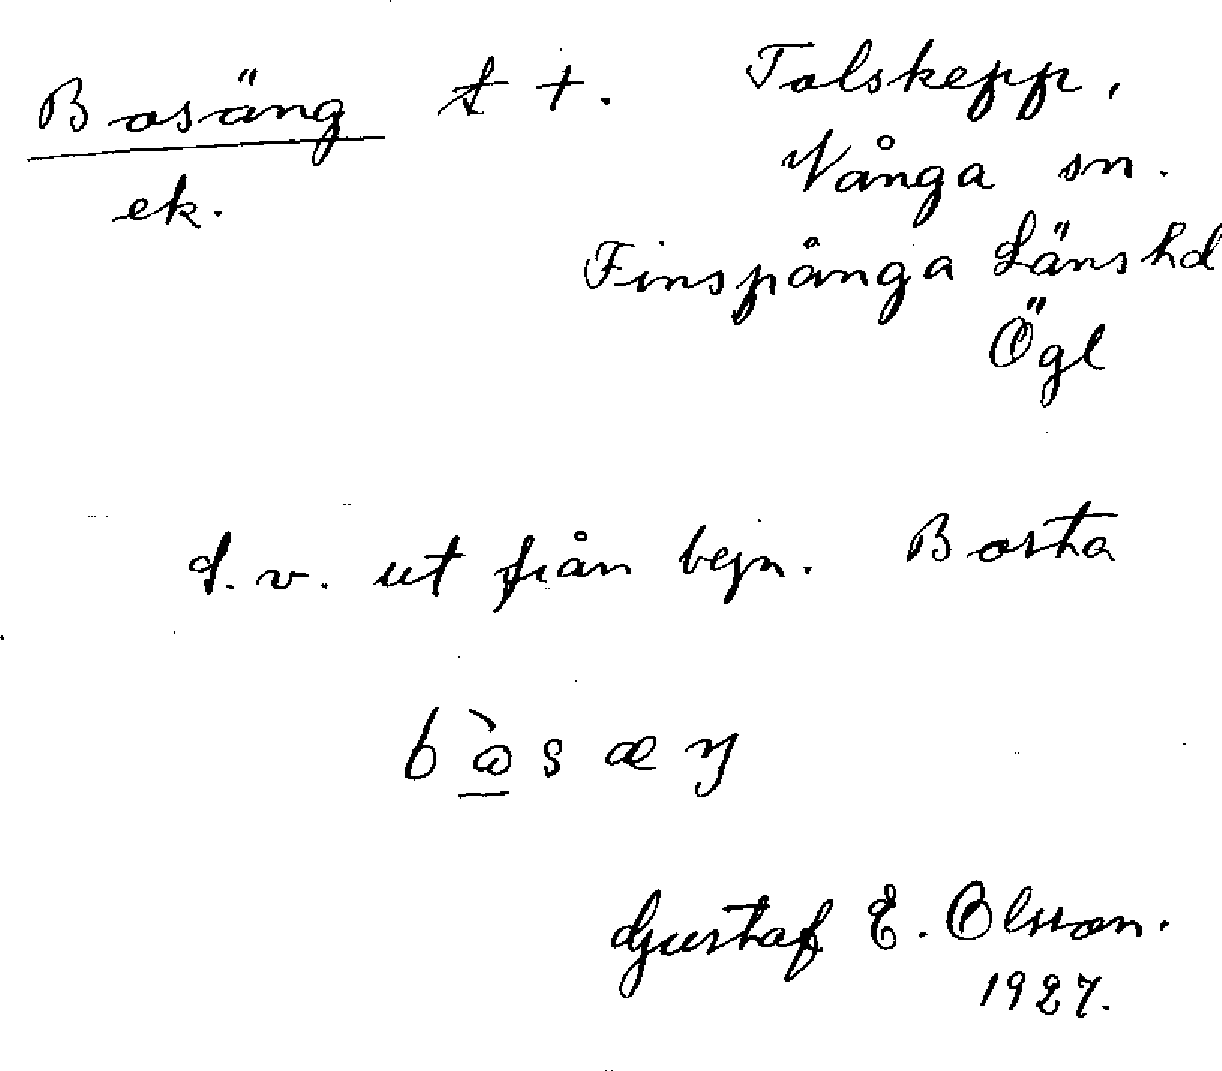 Bosäng t +. Tolskepp,
ek. Vånga sn.
Finspånga Länshd
Ögl
d. v. ut från begn. Borta
b o s æ ŋ
Gustaf E. Olsson.
1927.